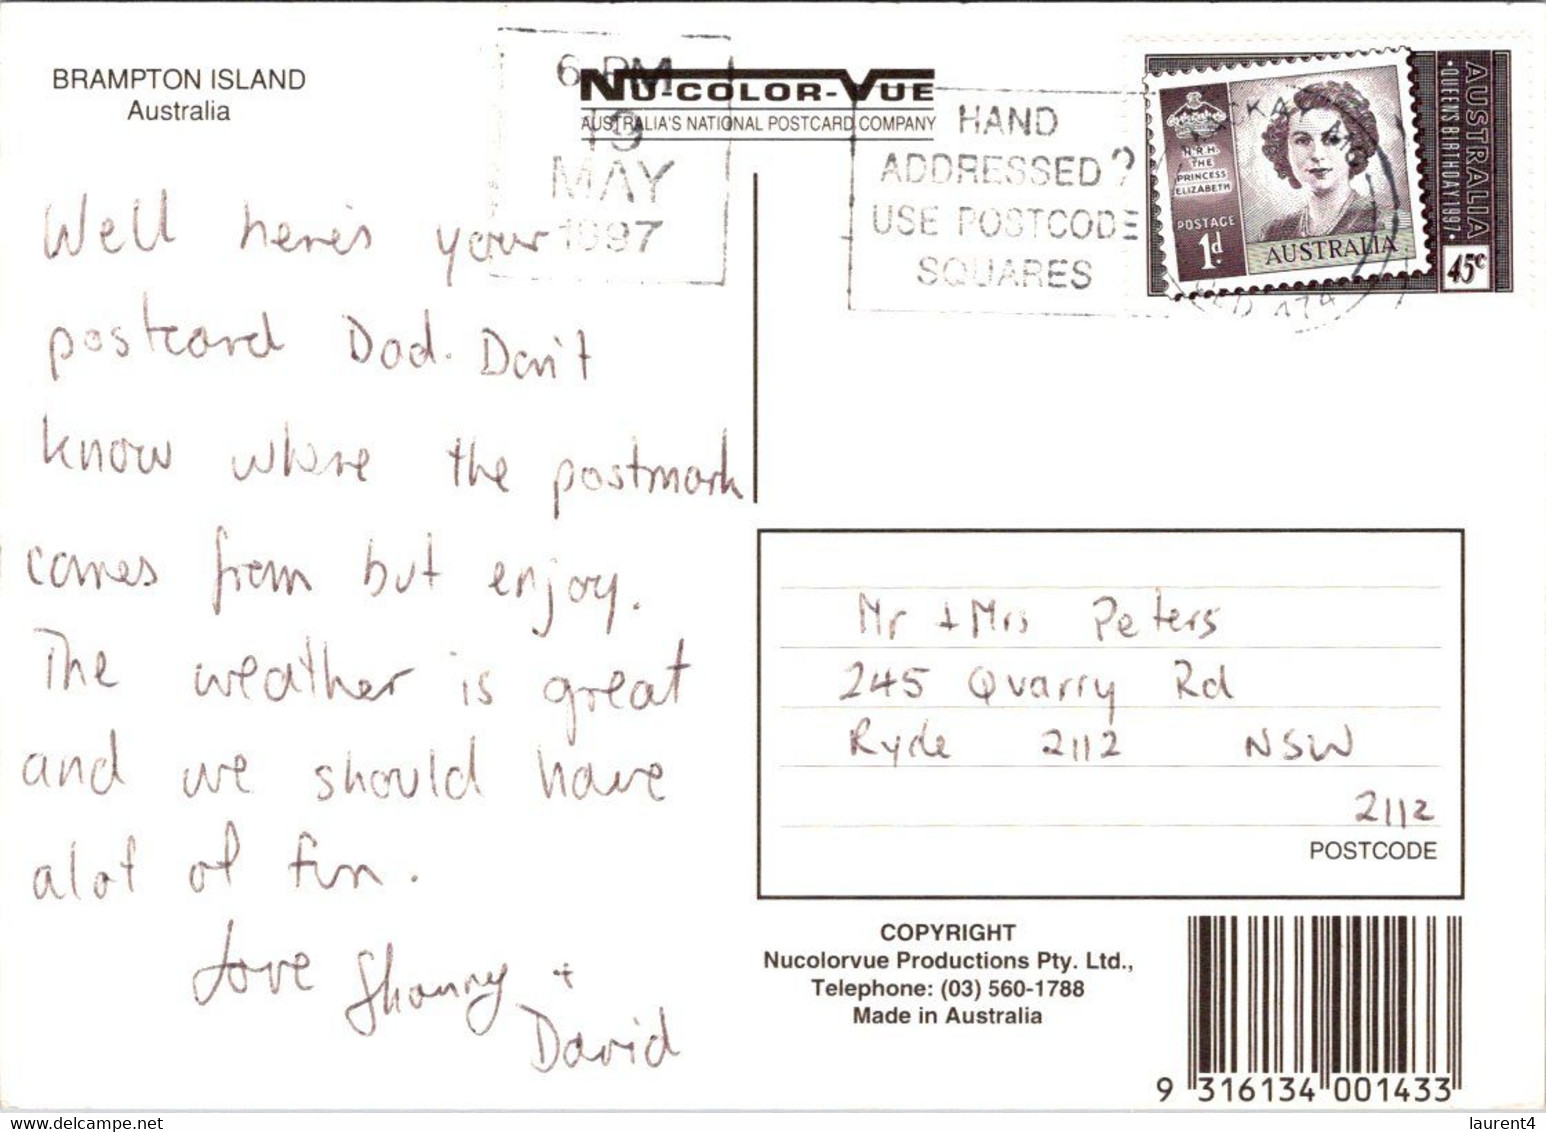 BRAMPTON ISLAND
Australia
6 PM
19
MAY
1997
NU-COLOR-VUE
AUSTRALIA'S NATIONAL POSTCARD COMPANY
HAND
ADDRESSED?
USE POSTCODE
SQUARES
H.R.H.
THE
PRINCESS
ELIZABETH
POSTAGE
1d
AUSTRALIA
AUSTRALIA
•QUEEN'S BIRTHDAY 1997•
45c
Well here's your
postcard Dad. Don't
know where the postmark
comes from but enjoy.
The weather is great
and we should have
alot of fun.
Love Shanny +
David
Mr + Mrs Peters
245 Quarry Rd
Ryde 2112 NSW
2112
POSTCODE
COPYRIGHT
Nucolorvue Productions Pty. Ltd.,
Telephone: (03) 560-1788
Made in Australia
9 316134 001433
www.delcampe.net
laurent4